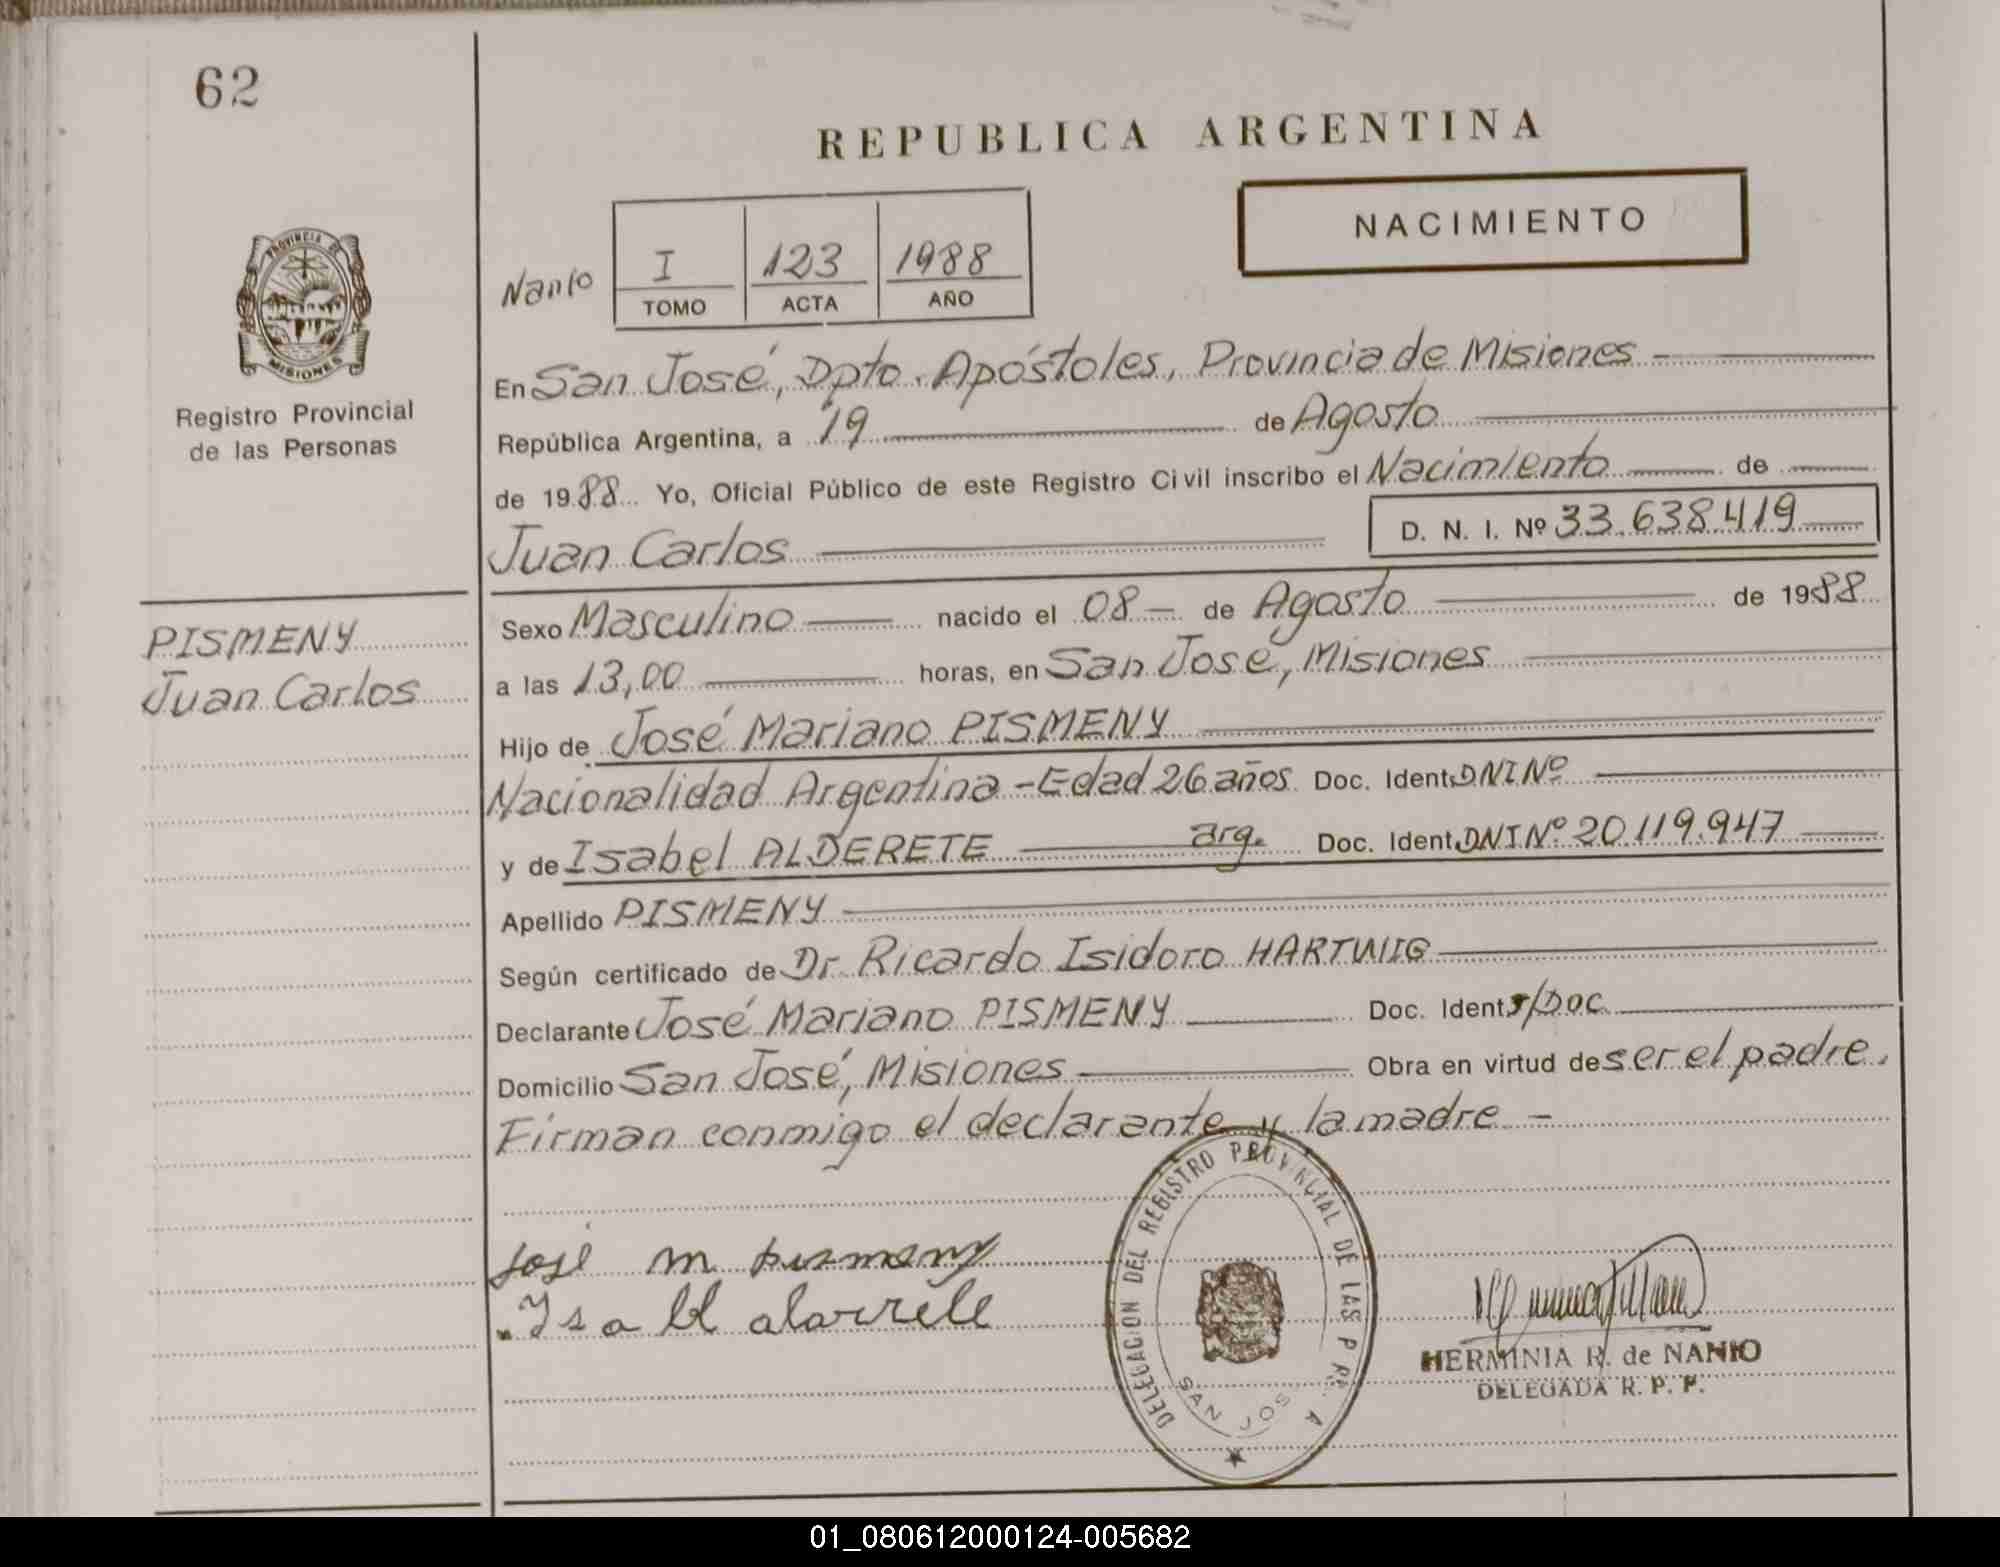 62
REPUBLICA ARGENTINA
NACIMIENTO
Nanio
I 123 1988
TOMO ACTA AÑO
PROVINCIA DE
MISIONES
Registro Provincial
de las Personas
En San José, Dpto. Apóstoles, Provincia de Misiones -
República Argentina, a 19 de Agosto
de 1988 Yo, Oficial Público de este Registro Civil inscribo el Nacimiento de
Juan Carlos D. N. I. Nº 33.638.419
PISMENY
Juan Carlos
Sexo Masculino nacido el 08 - de Agosto de 1988
a las 13,00 horas, en San José, Misiones
Hijo de José Mariano PISMENY
Nacionalidad Argentina - Edad 26 años Doc. Ident. DNI Nº
y de Isabel ALDERETE arg. Doc. Ident. DNI Nº 20.119.947
Apellido PISMENY
Según certificado de Dr. Ricardo Isidoro HARTWIG
Declarante José Mariano PISMENY Doc. Ident. s/Doc
Domicilio San José, Misiones Obra en virtud de ser el padre.
Firman conmigo el declarante y la madre -
DELEGACION DEL REGISTRO PROVINCIAL DE LAS P
SAN JOS
José m pismeny
HERMINIA R. de NANIO
DELEGADA R. P. P.
01_080612000124-005682